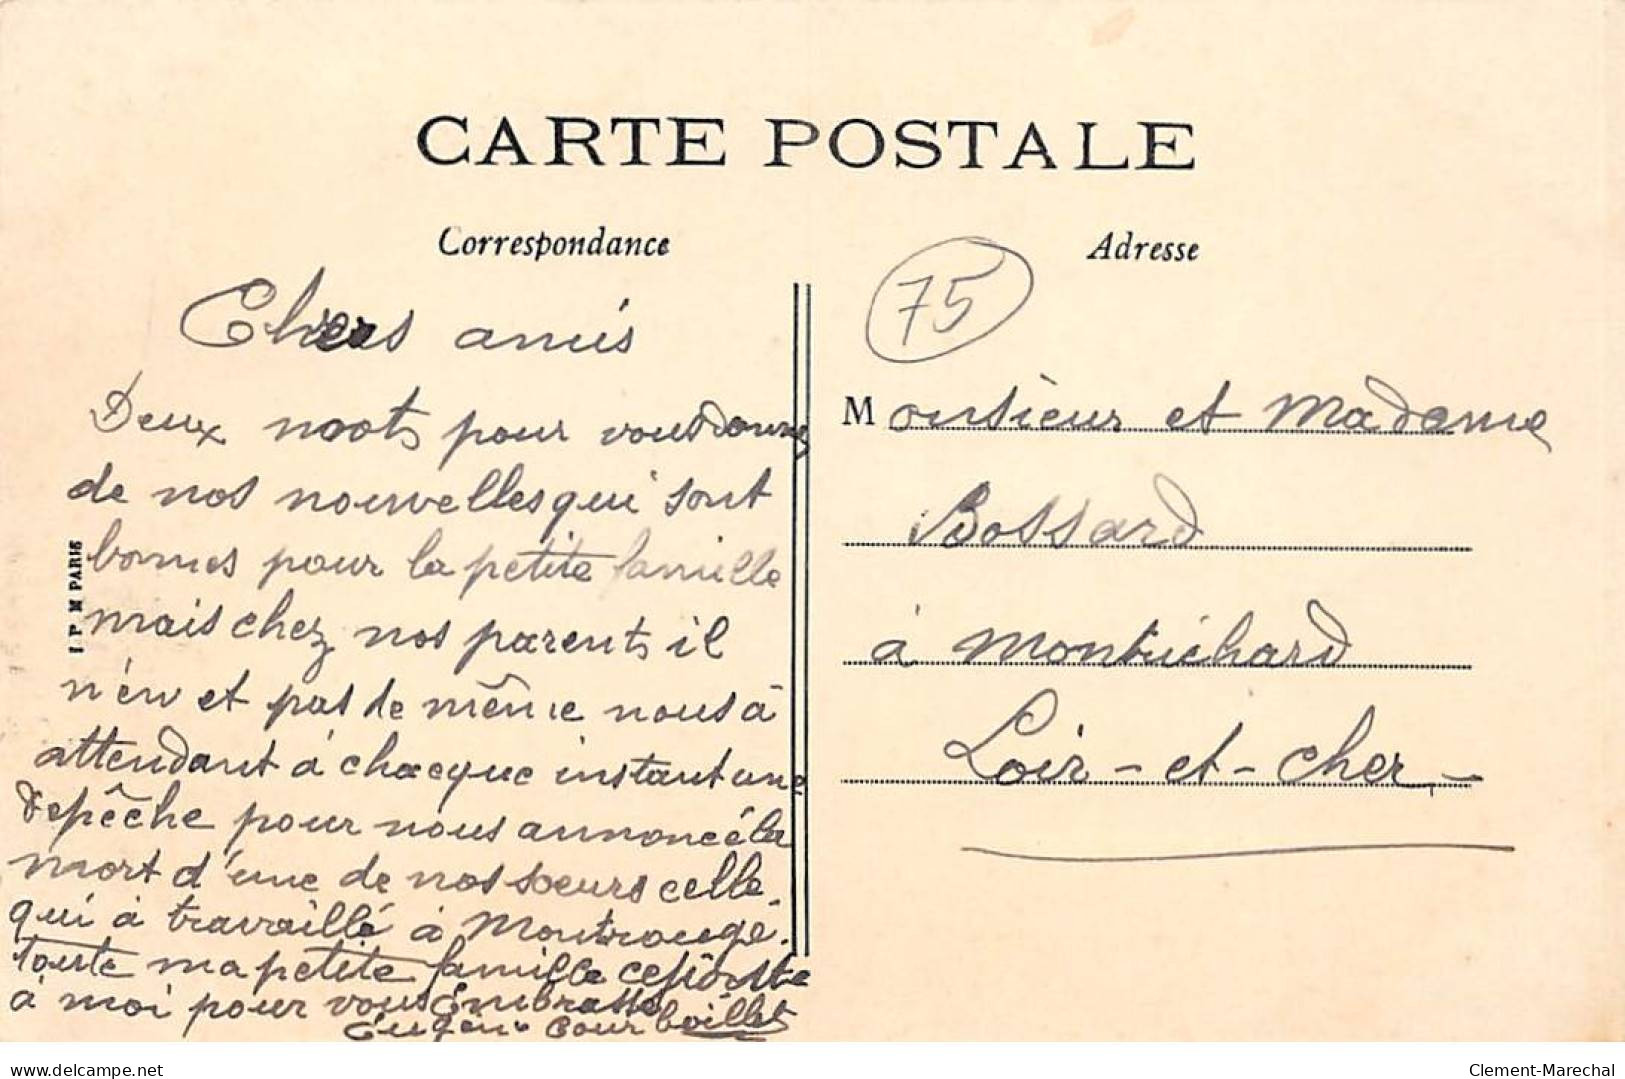 CARTE POSTALE
Correspondance
Chers amis
Deux moots pour vous donne
de nos nouvelles qui sont
bonnes pour la petite famille
mais chez nos parents il
n'en et pas de même nous à
attendant à chacque instant une
depêche pour nous annoncé la
mort d'une de nos soeurs celle
qui à travaillé à Montrouge.
toute ma petite famille ce joste
à moi pour vous Embrasse
Eugène Courboillet
I P M PARIS
Adresse
75
Monsieur et Madame
Bossard
à Montrichard
Loir-et-Cher
delcampe.net
Clement-Marechal